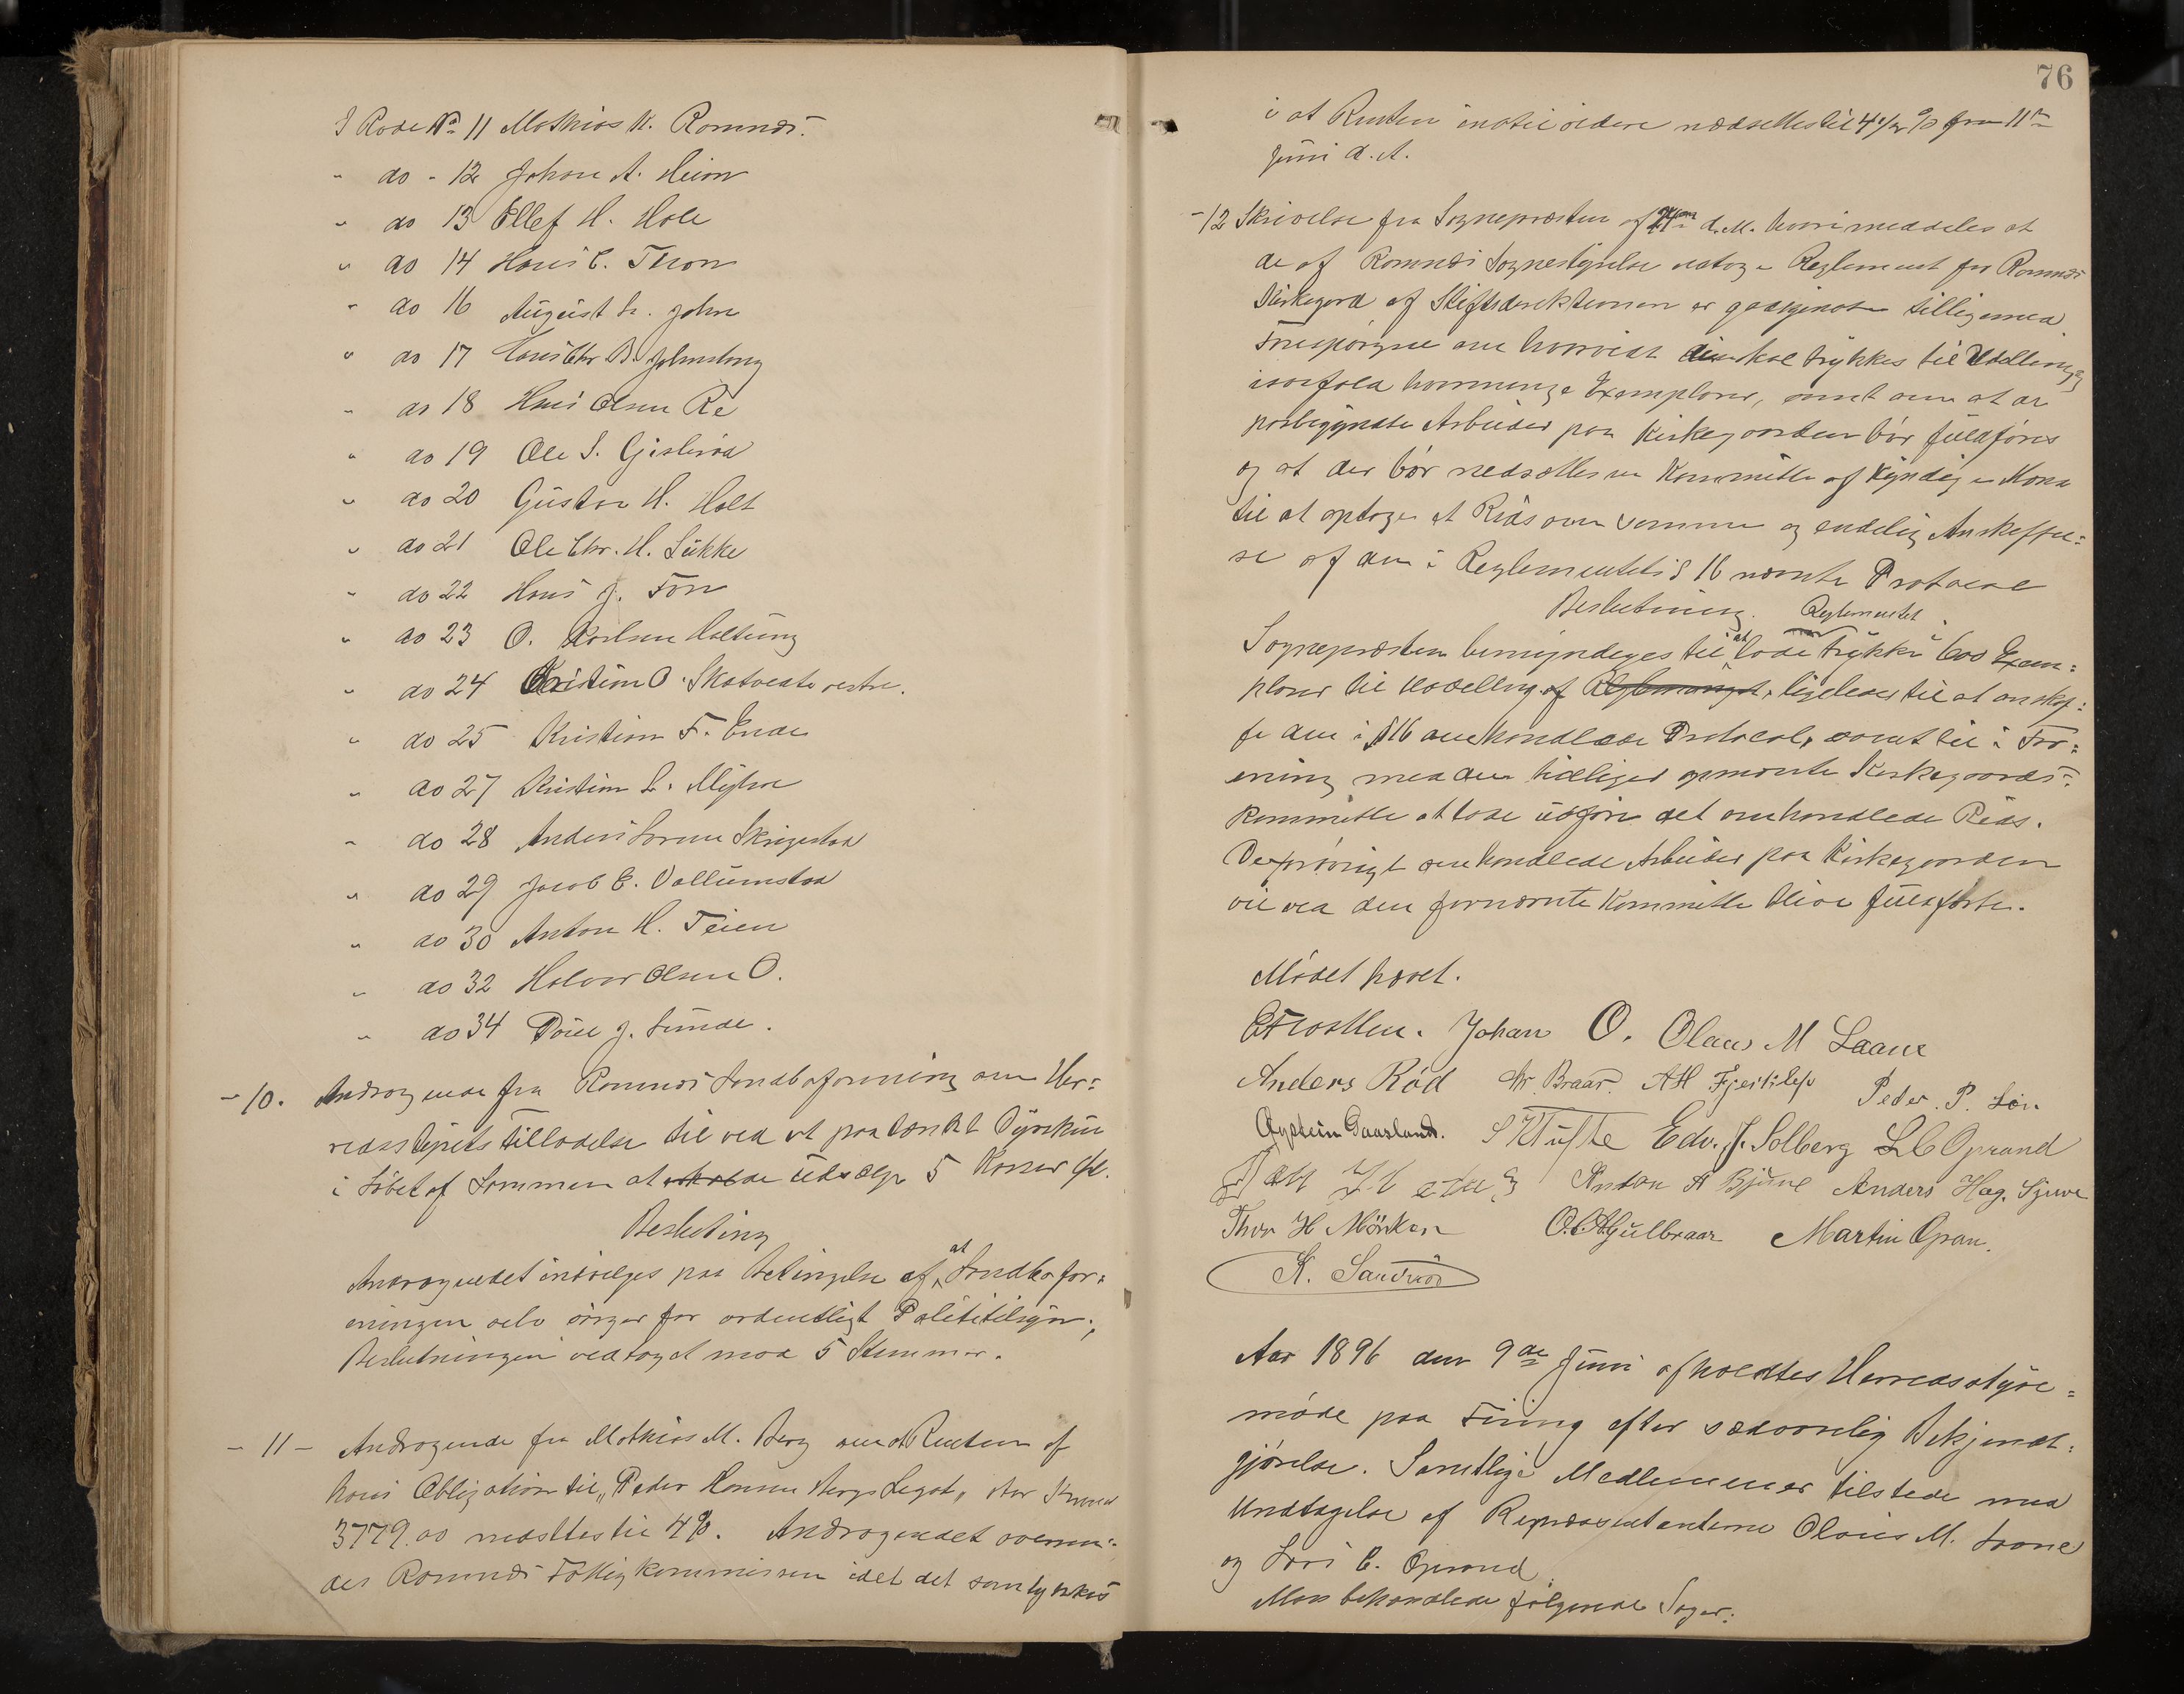 I Rode No 11 Mathias K. Romnæs.
" do - 12 Johan A. Heian
" do 13 Ellef H. Hole
" do 14 Hans C. Tron
" do 16 August L. John
" do 17 Hans Chr. B. Holmstrøng
" do 18 Hans Olsen Re
" do 19 Ole S. Gislerød
" do 20 Gustav H. Holt
" do 21 Ole Chr. H. Lükke
" do 22 Hans J. Fon
" do 23 O. Karlsen Holtung
" do 24 Kristian O. Skatvedt vestre.
" do 25 Kristian F. Ende
" do 27 Kristian L. Myhre
" do 28 Anders Larsen Skrigestad
" do 29 Jacob E. Vallumstad
" do 30 Anton H. Teien
" do 32 Halvor Olsen O.
" do 34 Poul J. Sunde.
- 10. Andragende fra Romnæs Landboforening om Her=
redsstyrets tilladelse til ved et paatænkt Dyrskue
i Løbet af Sommeren at udsælge 5 Kasser Øl.
Beslutning
Andragendet indvilges paa Betingelse af at Landbofor=
eningen selv sørger for ordentligt Polititilsyn.,
Beslutningen vedtaget mod 5 Stemmer.
- 11 - Andragende fra Mathias M. Berg om at Renten af
hans Obligation til „Peder Hansen Bergs Legat„ stor Kroner
3779.00 nedsættes til 4%. Andragendet oversen=
des Romnæs Fattigkommission idet det samtykkes
76
i at Renten indtil videre nedsættes til 4 1/2 % fra 11te
Juni d. A.
- 12 Skrivelse fra Sognepræsten af d. M. hvori meddeles at
de af Romnæs Sognestyrelse vedtagne Reglement for Romnæs
Kirkegaard af Stiftsdirektionen er godkjendt tilligemed
Forespørgsel om hvorvidt skal trykkes til Uddeling og
isaafald hvormange Exemplarer, samt om at de
paabegyndte Arbeider paa Kirkegaarden bør fuldføres
og at der bør nedsættes en Kommitte af kyndige Mænd
til at optage et Rids over samme og endelig Anskaffel=
se af den i Reglementets § 16 nævnte Protocol
Beslutning.
Sognepræsten bemyndiges til at lade Reglementet trykke i 600 Exem=
plarer til Uddeling af Reglementet, ligeledes til at anskaf=
fe den i § 16 omhandlede Protocol, samt til i For=
ening med den tidligere opnævnte Kirkegaards=
kommitte at lade udføre det omhandlede Rids.
De forøvrigt omhandlede Arbeider paa Kirkegaarden
vil ved den fornævnte Kommitte blive fuldførte.
Mødet hævet.
Johan O. Olaus M Laane
Anders Rød Chr. Braar. AH Fjeldalen Peder. P. Lia.
Øystein Gaasland. S K Tufte Edv. J. Solberg L C Oprand
Anton A Bjune Anders Hag. Sjuve
Thor H Mörken O.C.A. Gulbraar Martin Opran.
K. Sandnæs
Aar 1896 den 9de Juni afholdtes Herredsstyre=
møde paa Fining efter sædvanlig Bekjendt=
gjørelse. Samtlige Medlemmer tilstede med
Undtagelse af Repræsentanterne Olaus M. Laane
og Lars C. Oprand
Man behandlede følgende Sager: